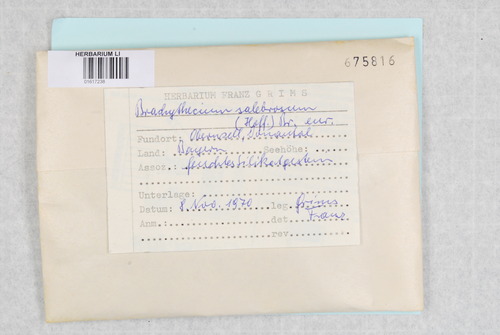 HERBARIUM LI
01617238
675816
HERBARIUM FRANZ GRIMS
Brachythecium salebrosum
(Hoff.) Br. eur.
Fundort: Obernzell, Donautal
Land: Bayern Seehöhe:
Assoz.: feuchtes
Unterlage:
Datum: 8. Nov. 1970 leg. Grims
Anm.: det. Franz
rev.